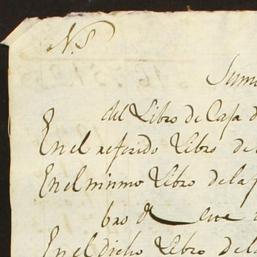 N.º 5
Suma
del Libro de Casa d
En el referido Libro de l
En el mismo Libro de la p
bro de
En el dicho Libro del